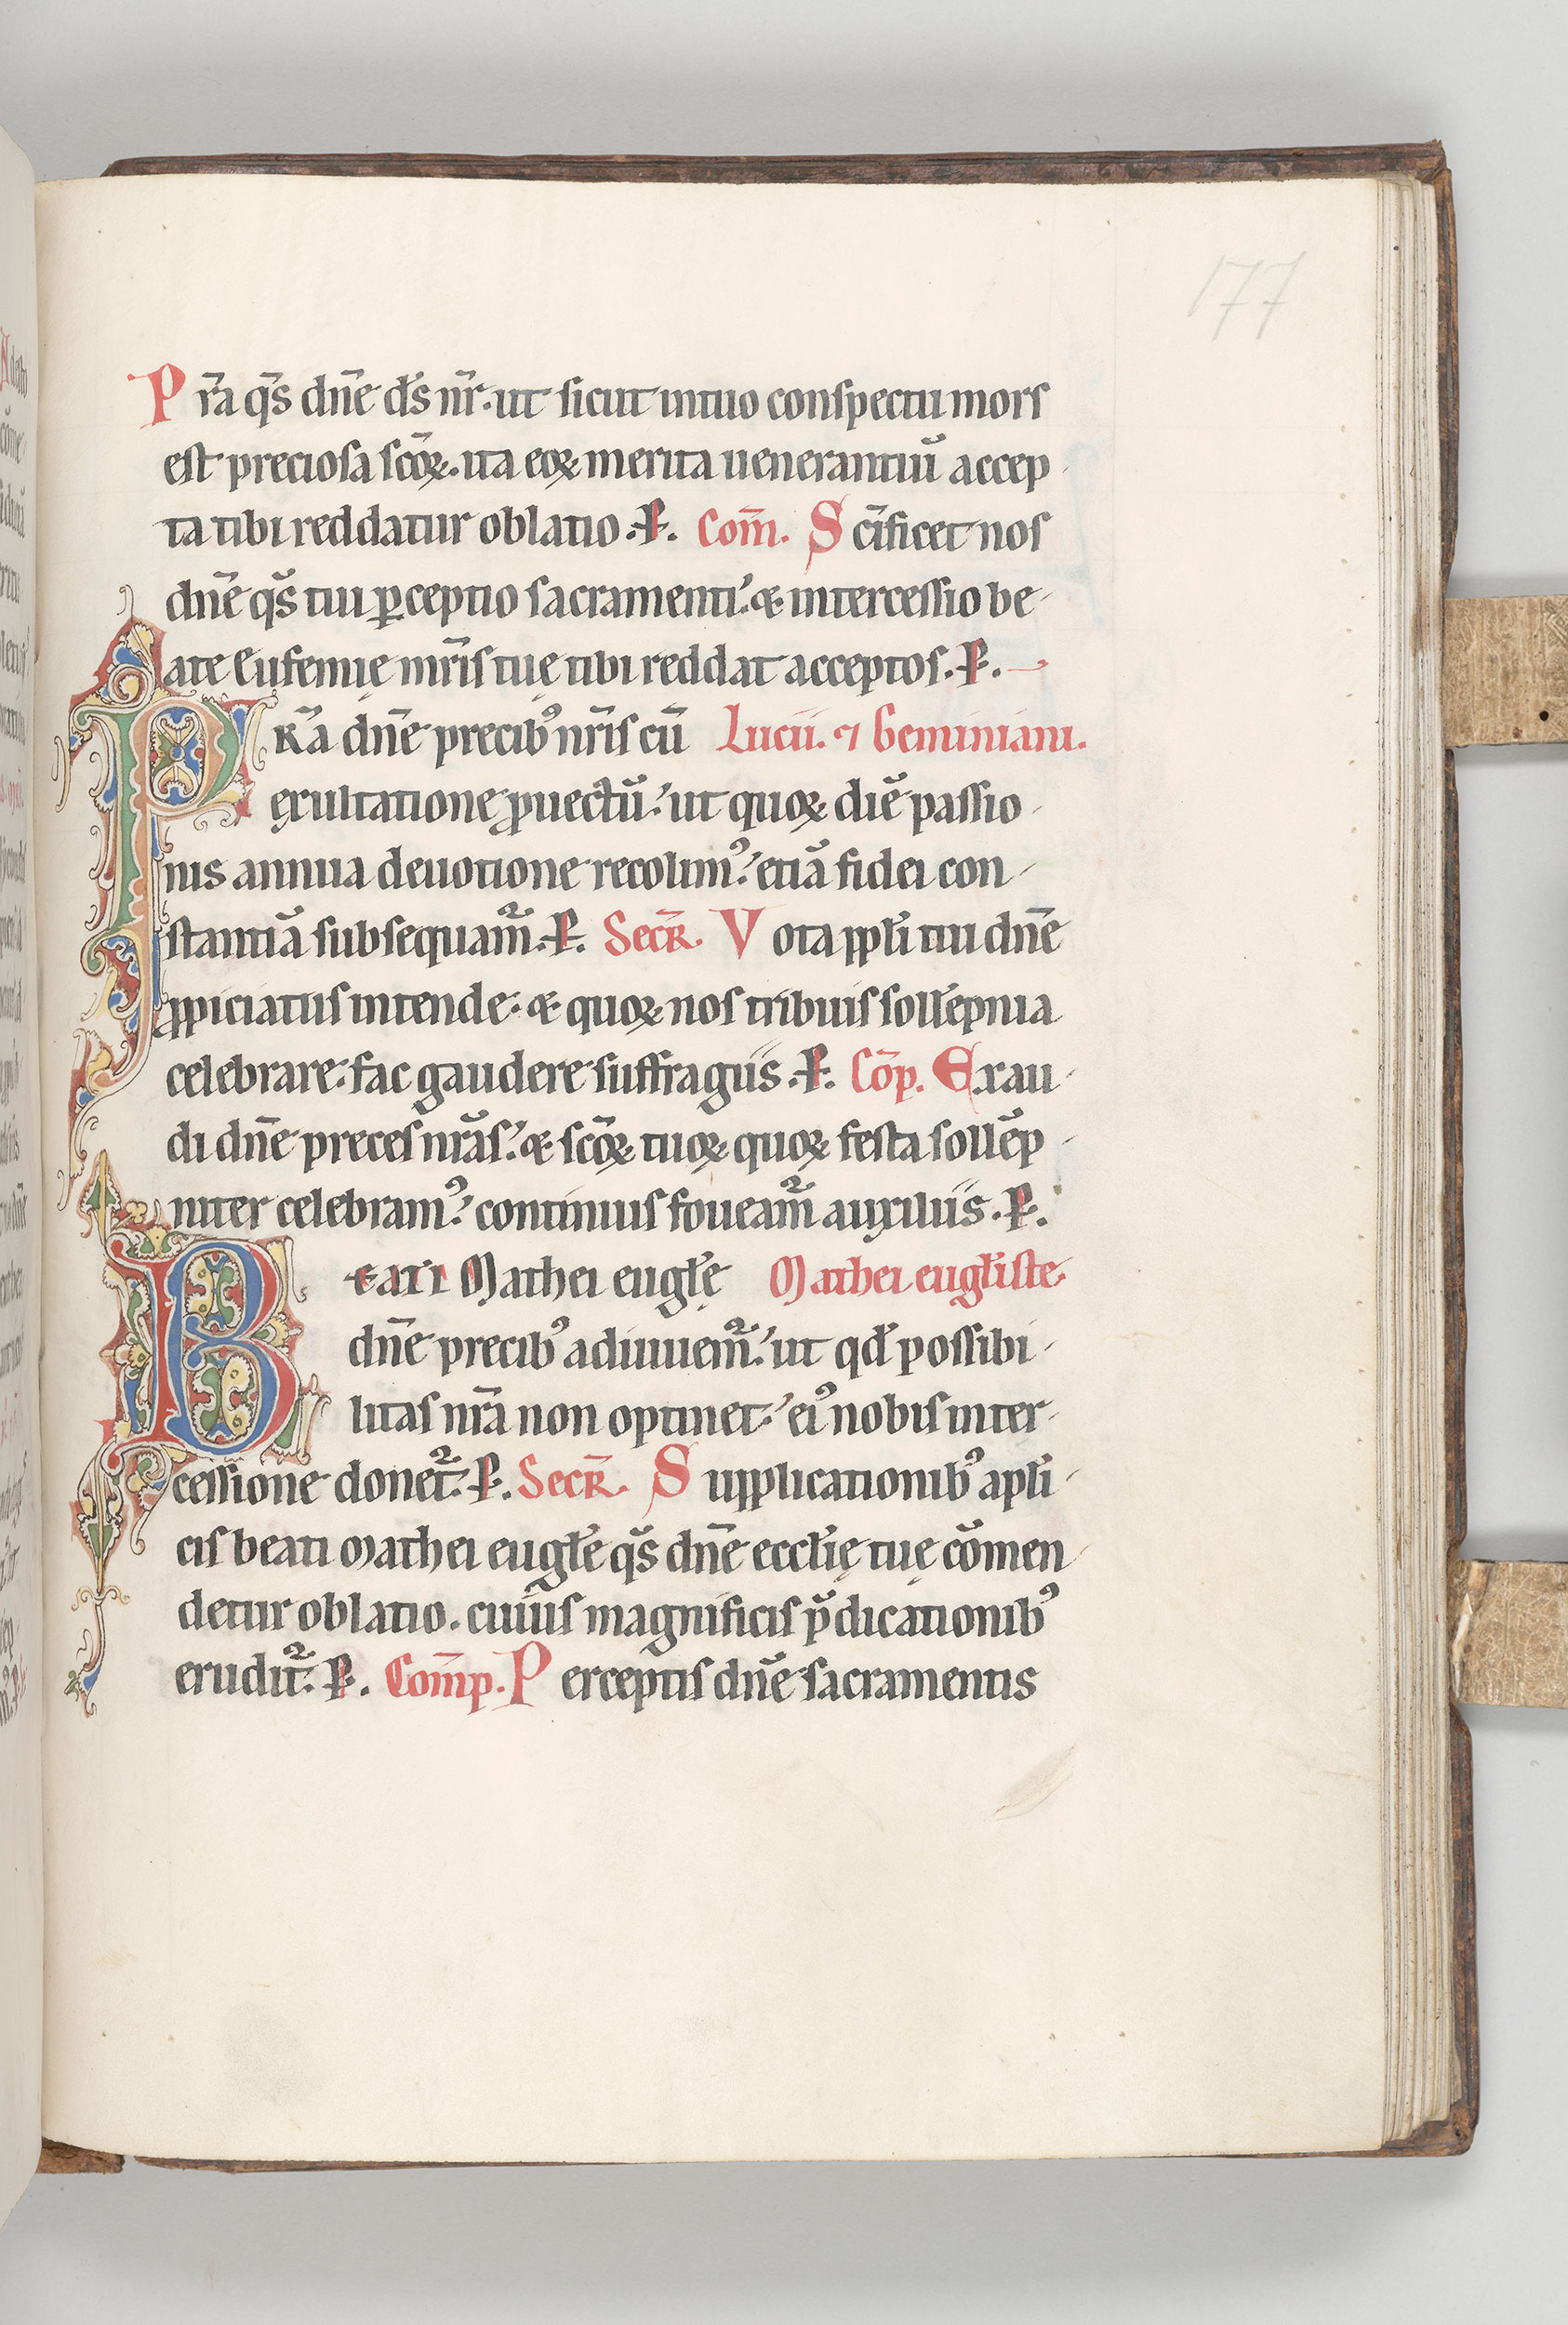 177
P r̄a q̄s dn̄e d̄s nr̄. ut sicut in tuo conspectu mors
est preciosa sc̄oꝝ. ita eoꝝ merita uenerantiū accep-
ta tibi reddatur oblatio. P. Com̄. S cīficet nos
dn̄e q̄s tui ꝑceptio sacramenti. & intercessio be-
ate Eufemię mr̄is tuę tibi reddat acceptos. P.
P R̄a dn̄e precibꝰ nr̄is cū Lucii. ⁊ Geminiani.
exultatione ꝓuectū. ut quoꝝ diē passio-
nis annua deuotione recolimꝰ. etiā fidei con-
stantiā subsequam̄. P. Secr̄. V ota pp̄li tui dn̄e
ꝓpiciatus intende. & quoꝝ nos tribuis soll̄epnia
celebrare. fac gaudere suffragiis. P. Cōp. Exau-
di dn̄e preces nr̄as. & sc̄oꝝ tuoꝝ quoꝝ festa soll̄ep-
niter celebramꝰ. continuis foueam̄ auxiliis. P.
B eati Mathei eugl̄ę Mathei eugl̄iste
dn̄e precibꝰ adiuuem̄. ut qd̄ possibi-
litas nr̄a non optinet. eiꝰ nobis inter-
cessione donet̄. P. Secr̄. S upplicationibꝰ apl̄i-
cis beati Mathei eugl̄e q̄s dn̄e eccl̄ię tuę cōmen
detur oblatio. cuius magnificis p̄dicationibꝰ
erudit̄. P. Com̄p. P erceptis dn̄e sacramentis